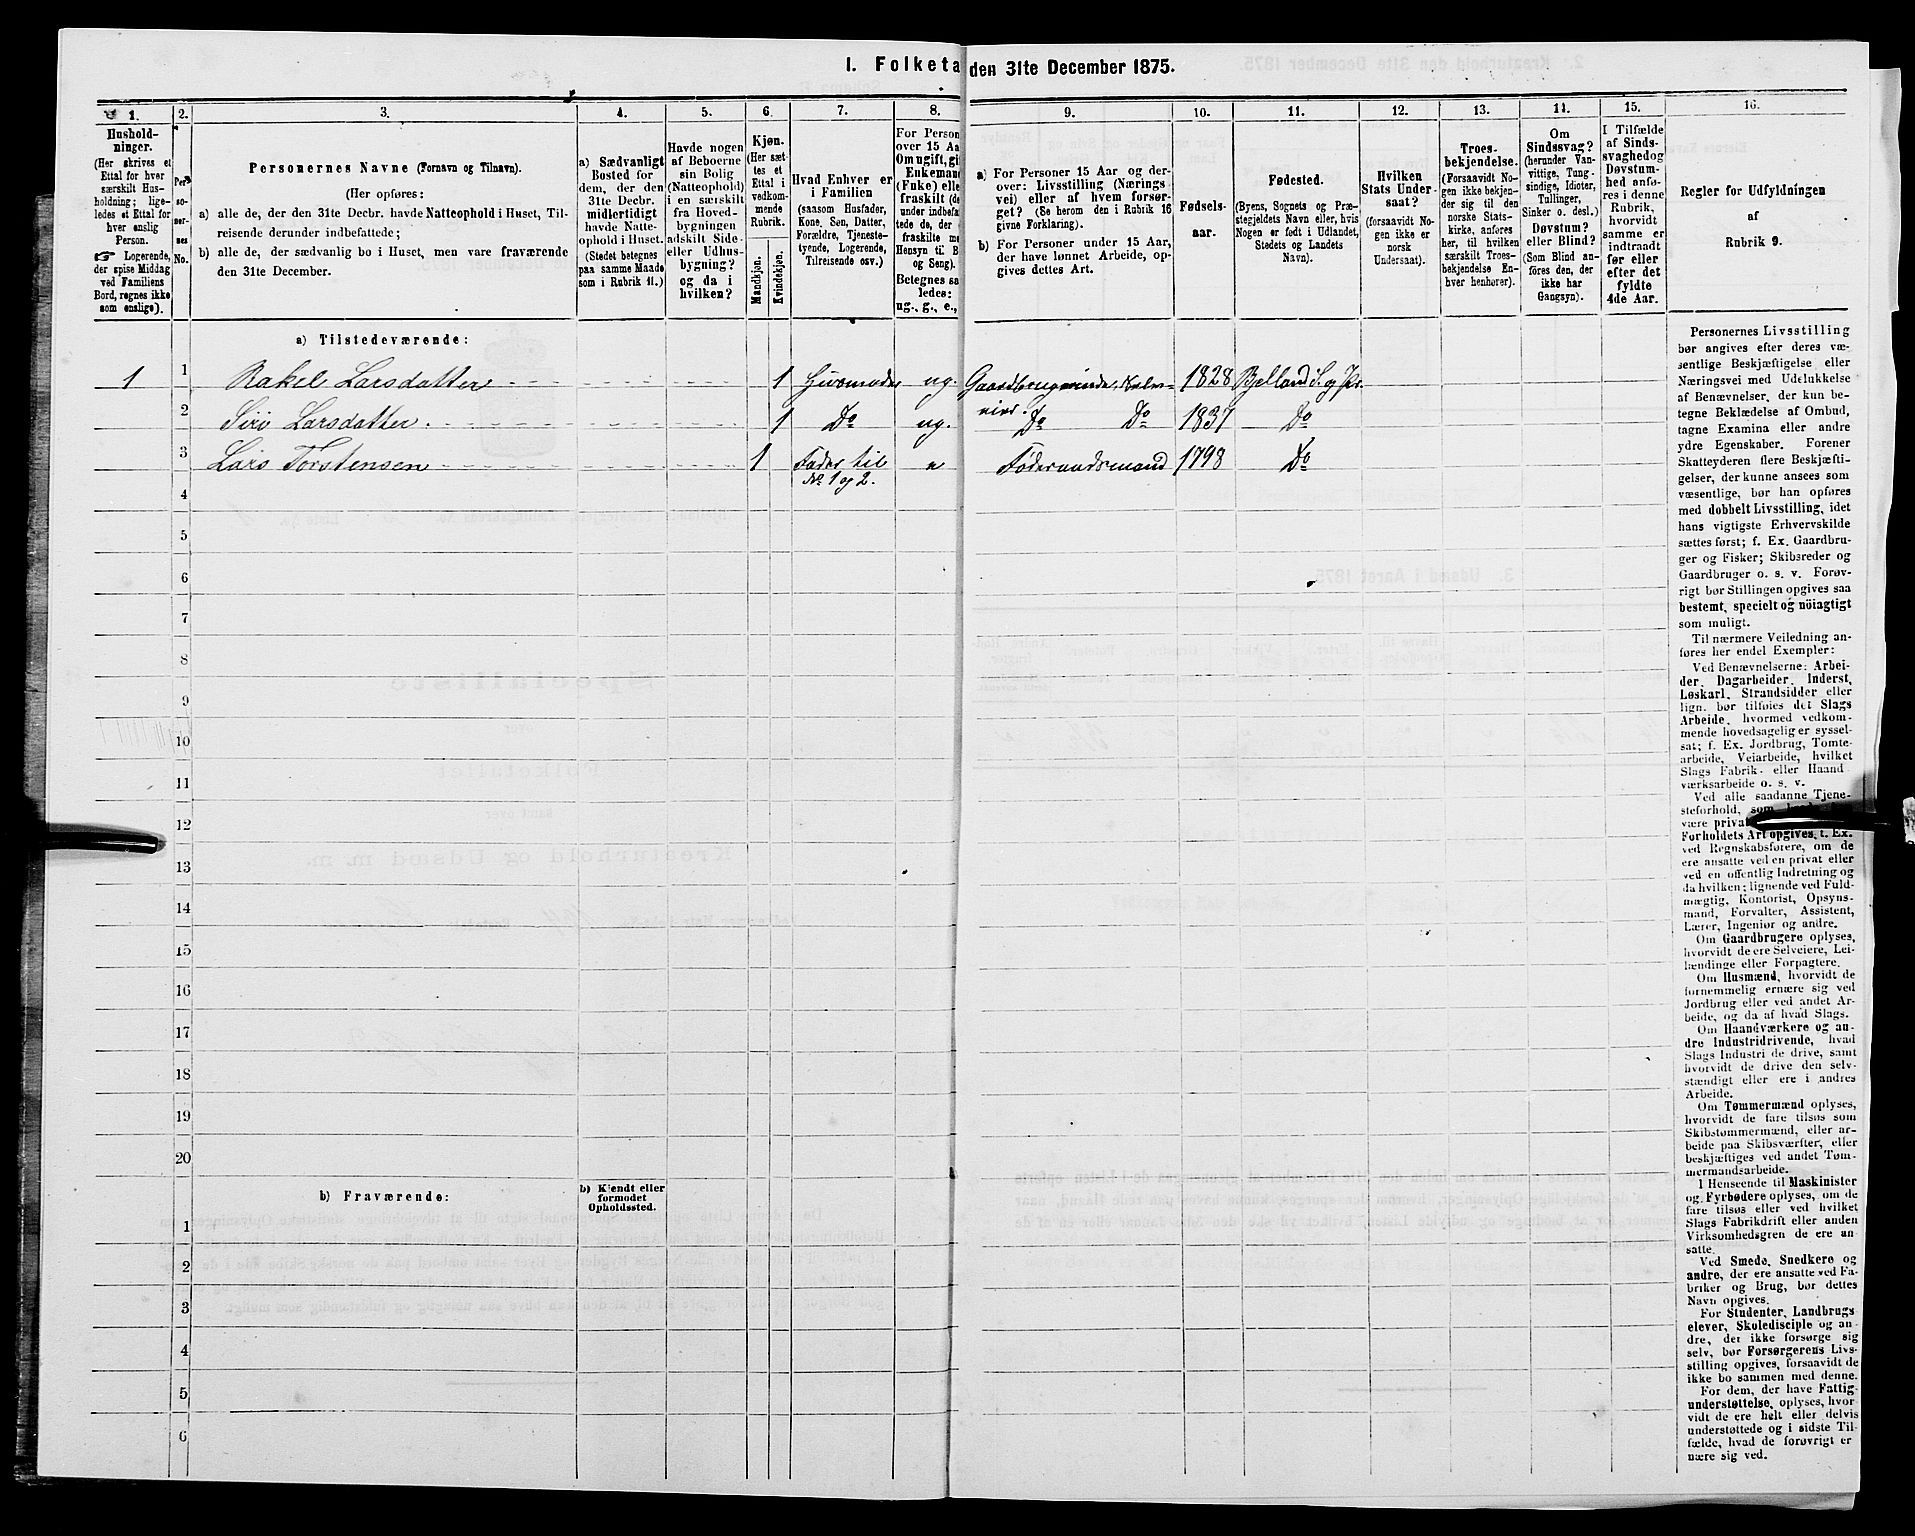 I. Folketa den 31te December 1875.
1. 2. 3. 4. 5. 6. 7. 8. 9. 10. 11. 12. 13. 14. 15. 16.
Hushold-
ninger.
(Her skrives et
Ettal for hver
særskilt Hus-
holdning; lige-
ledes et Ettal for
hver enslig
Person.
☞ Logerende,
der spise Middag
ved Familiens
Bord, regnes ikke
som enslige).
Per-
so-
ner-
nes
No.
Personernes Navne (Fornavn og Tilnavn).
(Her opføres:
a) alle de, der den 31te Decbr. havde Natteophold i Huset, Til-
reisende derunder indbefattede;
b) alle de, der sædvanlig bo i Huset, men vare fraværende
den 31te December.
a) Sædvanligt
Bosted for
dem, der den
31te Decbr.
midlertidigt
havde Natte-
ophold i Huset.
(Stedet betegnes
paa samme Maade
som i Rubrik 11.)
Havde nogen
af Beboerne
sin Bolig
(Natteophold)
i en særskilt
fra Hoved-
bygningen
adskilt Side-
eller Udhus-
bygning?
og da i
hvilken?
Kjøn.
(Her sæt-
tes et
Ettal i
vedkom-
mende
Rubrik.
Mandkjøn.
Kvindekjøn.
Hvad Enhver er
i Familien
(saasom Husfader,
Kone, Søn, Datter,
Forældre, Tjeneste-
tyende, Logerende,
Tilreisende osv.)
For Person
over 15 Aa
Om ugift, gi
Enkemand
(Fnke) elle
fraskilt (de
under indbefat
tede de, der
fraskilte me
Hensyn til B
og Seng).
Betegnes saa
ledes:
ug., g., e.,
a) For Personer 15 Aar og der-
over: Livsstilling (Nærings
vei) eller af hvem forsør-
get? (Se herom den i Rubrik 16
givne Forklaring).
b) For Personer under 15 Aar,
der have lønnet Arbeide, op-
gives dettes Art.
Fødsels-
aar.
Fødested.
(Byens, Sognets og Præ-
stegjeldets Navn eller, hvis
Nogen er født i Udlandet,
Stedets og Landets
Navn).
Hvilken
Stats Under-
saat?
(forsaavidt No-
gen ikke er
norsk
Undersaat).
Troes-
bekjendelse.
(Forsaavidt No-
gen ikke bekjen-
der sig til den
norske Stats-
kirke, anføres
her, til hvilken
særskilt Troes-
bekjendelse En-
hver henhører).
Om
Sindssvag?
(herunder Van-
vittige, Tung-
sindige, Idioter,
Tullinger,
Sinker o. desl.)
Døvstum?
eller Blind?
(Som Blind an-
føres den, der
ikke har
Gangsyn).
I Tilfælde
af Sinds-
svaghedog
Døvstum-
hed anfø-
res i denne
Rubrik,
hvorvidt
samme er
indtraadt
før eller
efter det
fyldte
4de Aar.
Regler for Udfyldningen
af
Rubrik 9.
a) Tilstedeværende:
1 1 Rakel Larsdatter 1 Husmoder ug. Gaardbrugerinde, Selv- 1828 Bjelland S. og Pr.
eier.
2 Siri Larsdatter 1 Do ug. Do Do 1837 Do
3 Lars Torstensen 1 Fader til e Føderaadsmand 1798 Do
No 1 og 2.
4
5
6
7
8
9
10
11
12
13
14
15
16
17
18
19
20
b) Fraværende:
b) Kjendt eller
formodet
Opholdssted.
1
2
3
4
5
6
Personernes Livsstilling
bør angives efter deres væ-
sentlige Beskjæftigelse eller
Næringsvei med Udelukkelse
af Benævnelser, der kun be-
tegne Beklædelse af Ombud,
tagne Examina eller andre
ydre Egenskaber. Forener
Skatteyderen flere Beskjæfti-
gelser, der kunne ansees som
væsentlige, bør han opføres
med dobbelt Livsstilling, idet
hans vigtigste Erhvervskilde
sættes først; f. Ex. Gaardbru-
ger og Fisker; Skibsreder og
Gaardbruger o. s. v. Forøv-
rigt bør Stillingen opgives saa
bestemt, specielt og nöiagtigt
som muligt.
Til nærmere Veiledning an-
føres her endel Exempler:
Ved Benævnelserne: Arbei-
der, Dagarbeider, Inderst,
Løskarl, Strandsidder eller
lign. bør tilføies det Slags
Arbeide, hvormed vedkom-
mende hovedsagelig er syssel-
sat; f. Ex. Jordbrug, Tomte-
arbeide, Veiarbeide, hvilket
Slags Fabrik- eller Haand-
værksarbeide o. s. v.
Ved alle saadanne Tjene-
steforhold, som
være privat
Forholdets Art opgives, t. Ex.
ved Regnskabsførere, om de
ere ansatte ved en privat eller
ved en offentlig Indretning og
da hvilken; lignende ved Fuld-
mægtig, Kontorist, Opsyns-
mand, Forvalter, Assistent,
Lærer, Ingeniør og andre.
Om Gaardbrugere oplyses,
hvorvidt de ere Selveiere, Lei-
lændinge eller Forpagtere.
Om Husmænd, hvorvidt de
fornemmelig ernære sig ved
Jordbrug eller ved andet Ar-
beide, og da af hvad Slags.
Om Haandværkere og an-
dre Industridrivende, hvad
Slags Industri de drive, samt
hvorvidt de drive den selv-
stændigt eller ere i andres
Arbeide.
Om Tømmermænd oplyses,
hvorvidt de fare tilsøs som
Skibstømmermænd, eller ar-
beide paa Skibsværfter, eller
beskjæftiges ved andet Tøm-
mermandsarbeide.
I Henseende til Maskinister
og Fyrbødere oplyses, om de
fare tilsøs eller ved hvilket
Slags Fabrikdrift eller anden
Virksomhedsgren de ere an-
satte.
Ved Smede, Snedkere og
andre, der ere ansatte ved Fa-
briker og Brug, bør dettes
Navn opgives.
For Studenter, Landbrugs-
elever, Skoledisciple og an-
dre, der ikke forsørge sig
selv, bør Forsørgerens Livs-
stilling opgives, forsaavidt de
ikke bo sammen med denne.
For dem, der have Fattig-
understøttelse, oplyses, hvor-
vidt de ere helt eller delvis
understøttede og i sidste Til-
fælde, hvad de forøvrigt er
nære sig ved.